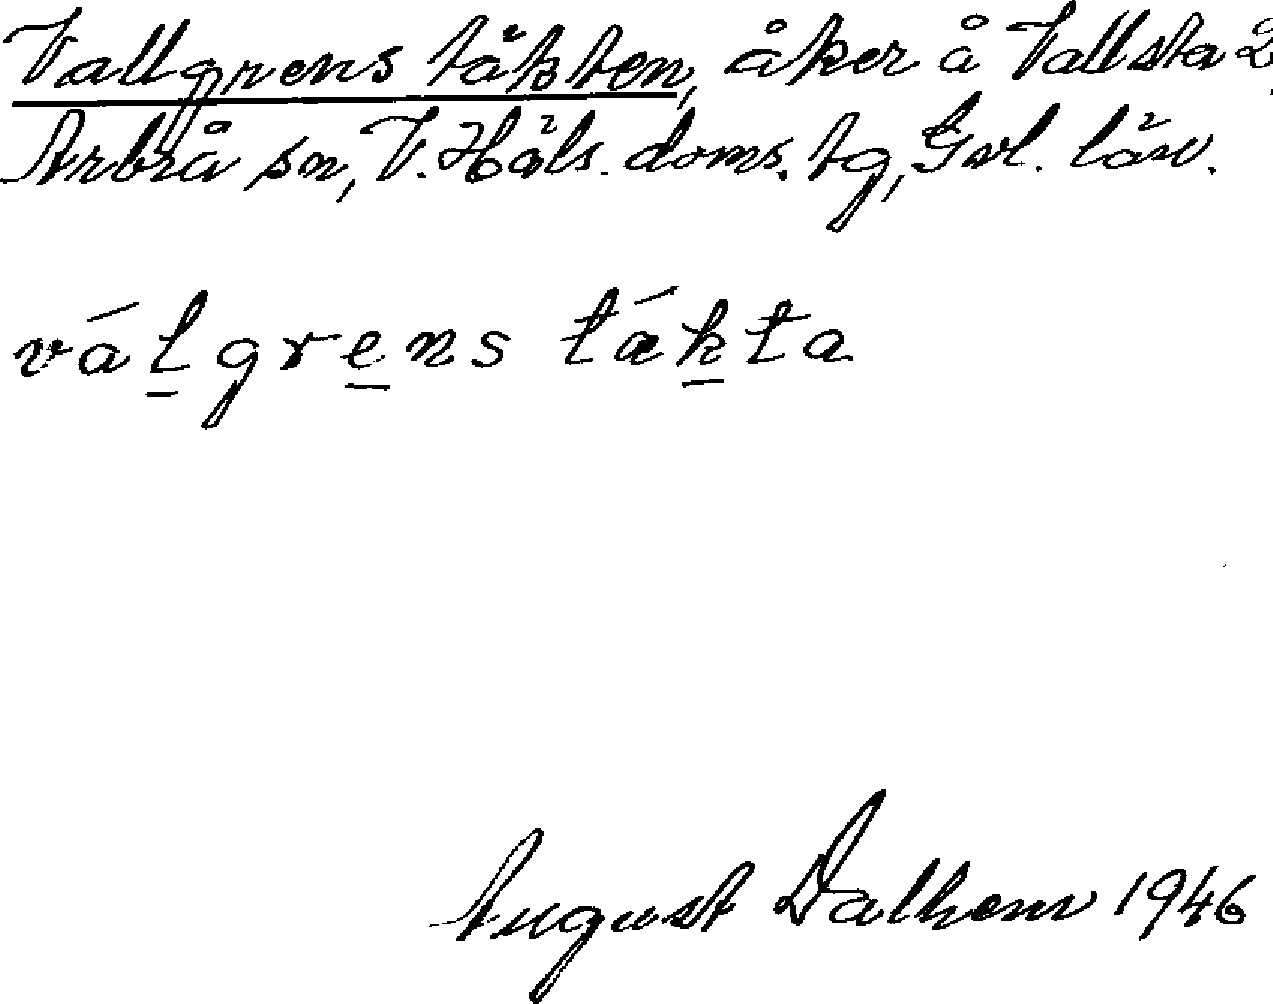 Vallgrens täkten, åker å Vallsta 2,
Arbrå sn, V. Häls. doms. tg, Gvl. län.
válgrens tǽkta
August Dalhem 1946